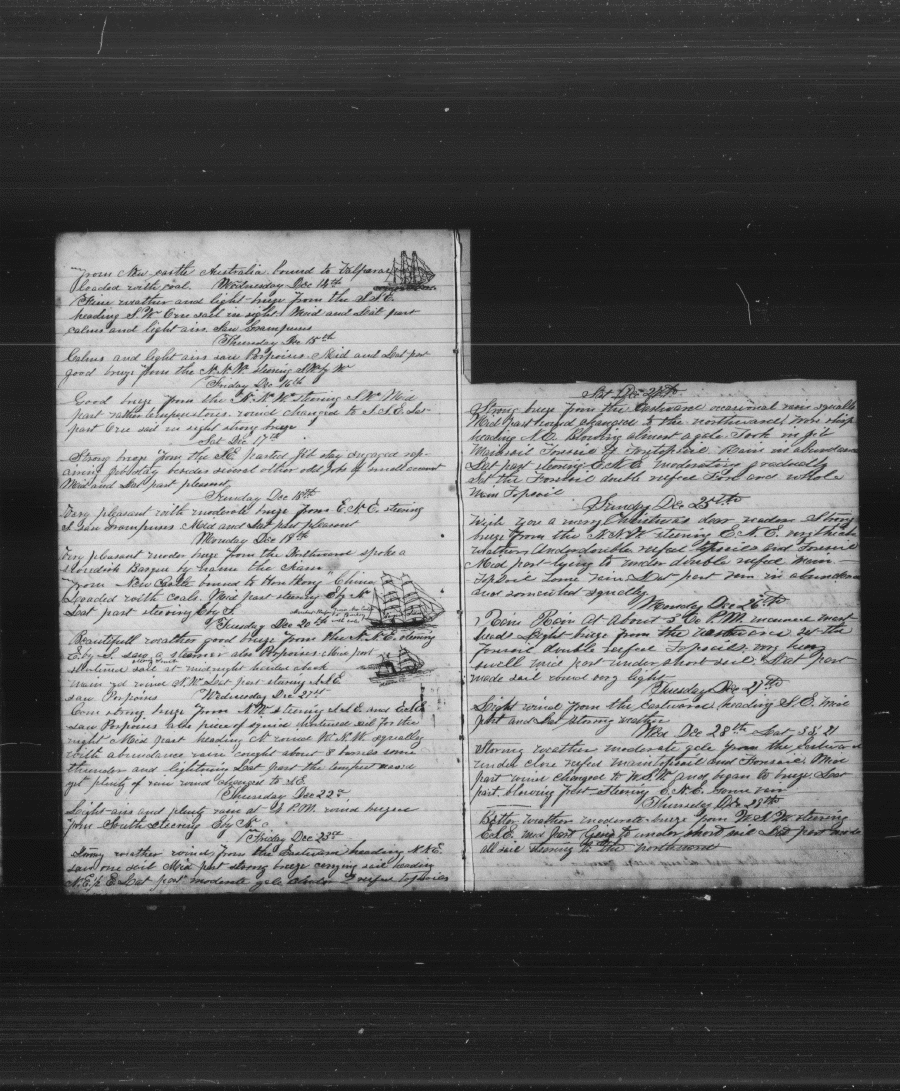 from New-castle Australia bound to Valparaiso
loaded with coal. Wednesday Dec 14th
Fine weather and light breeze from the S.S.E.
heading S.W. One sail in sight Mid and Last part
calms and light airs Saw Grampuses
Thursday Dec 15th
Calms and light airs saw Porpoises. Mid and Last part
good breeze from the N.N.W. steering S.W. by W
Friday Dec 16th
Good breeze from the N.N.W. steering S.W. Mid
part rather tempestuous. wind changed to S.S.E. Last
part One sail in sight strong breeze
Sat Dec 17th
Strong breeze from the S.E. parted jib stay engaged rep-
airing jibstay besides several other odd jobs of small account
Mid and Last part pleasant
Sunday Dec 18th
Very pleasant with moderate breeze from E.N.E. steering
S. Saw Grampuses Mid and Last part pleasant
Monday Dec 19th
Very pleasant moder breeze from the Northward spoke a
Swedish Barque by name the
from New Castle bound to Hon Kong China
Loaded with coals. Mid part steering E by N
Last part steering E by S.
Tuesday Dec 20th
Beautifull weather good breeze from the N.N.E. steering
E by S. saw a steamer also Porpoises. Mid part
shortened sail at midnight hauled aback
main yd wind N.W. Last part steering S.S.E
saw Porpoises Wednesday Dec 21st
Com strong breeze from N.W. steering S.S.E. and
saw Porpoises also piece of shortened sail for the
night Mid part heading N. wind W.N.W. squally
with abundance rain caught about 8 barrels some
thunder and lightning Last part the tempest
get plenty of rain wind changed to S.E.
Thursday Dec 22d
Light airs and plenty rain at 2 P.M. wind
from South Steering E by N
Friday Dec 23d
Strong weather wind from the Eastward heading N.N.E.
saw one sail Mid part strong breeze carrying sail heading
N.E. by E. Last part moderate gale under 2 reefed topsails
Sat Dec 24th
Strong breeze from the Eastward occasional rain squalls
Mid part wind changed to the northward. Wore ship
heading N.E. Blowing almost a gale. Took in jib
Mainsail Foresail & foretopsail. Rain in abundance
Last part steering E.N.E. moderating gradually
set the Foresail double reefed Fore and whole
Main Topsail
Sunday Dec 25th
Wish you a merry Christmas dear reader Strong
breeze from the N.N.W. steering E.N.E. very thick
weather. Under double reefed topsails and Foresail
Mid part lying to under double reefed Main-
topsail some rain. Last part rain in abundance
and somewhat squally
Monday Dec 26th
Rain Rain At about 5 P.M.
Light breeze from the eastward. set the
foresail double reefed Topsails. very heavy
swell mid part under short sail. Last part
made sail wind very light
Tuesday Dec 27th
Light wind from the Eastward heading S.E. Mid
part and Last stormy weather
Wed Dec 28th Lat
Stormy weather moderate gale from the Eastward
under close reefed maintopsail and Foresail. Mid
part wind changed to W.S.W. and began to breeze Last
part blowing fast steering E.N.E. Some rain
Thursday Dec 29th
Better weather moderate breeze from W.N.W. steering
E.N.E. mid part lying to under short sail Last part made
all sail steering to the northward